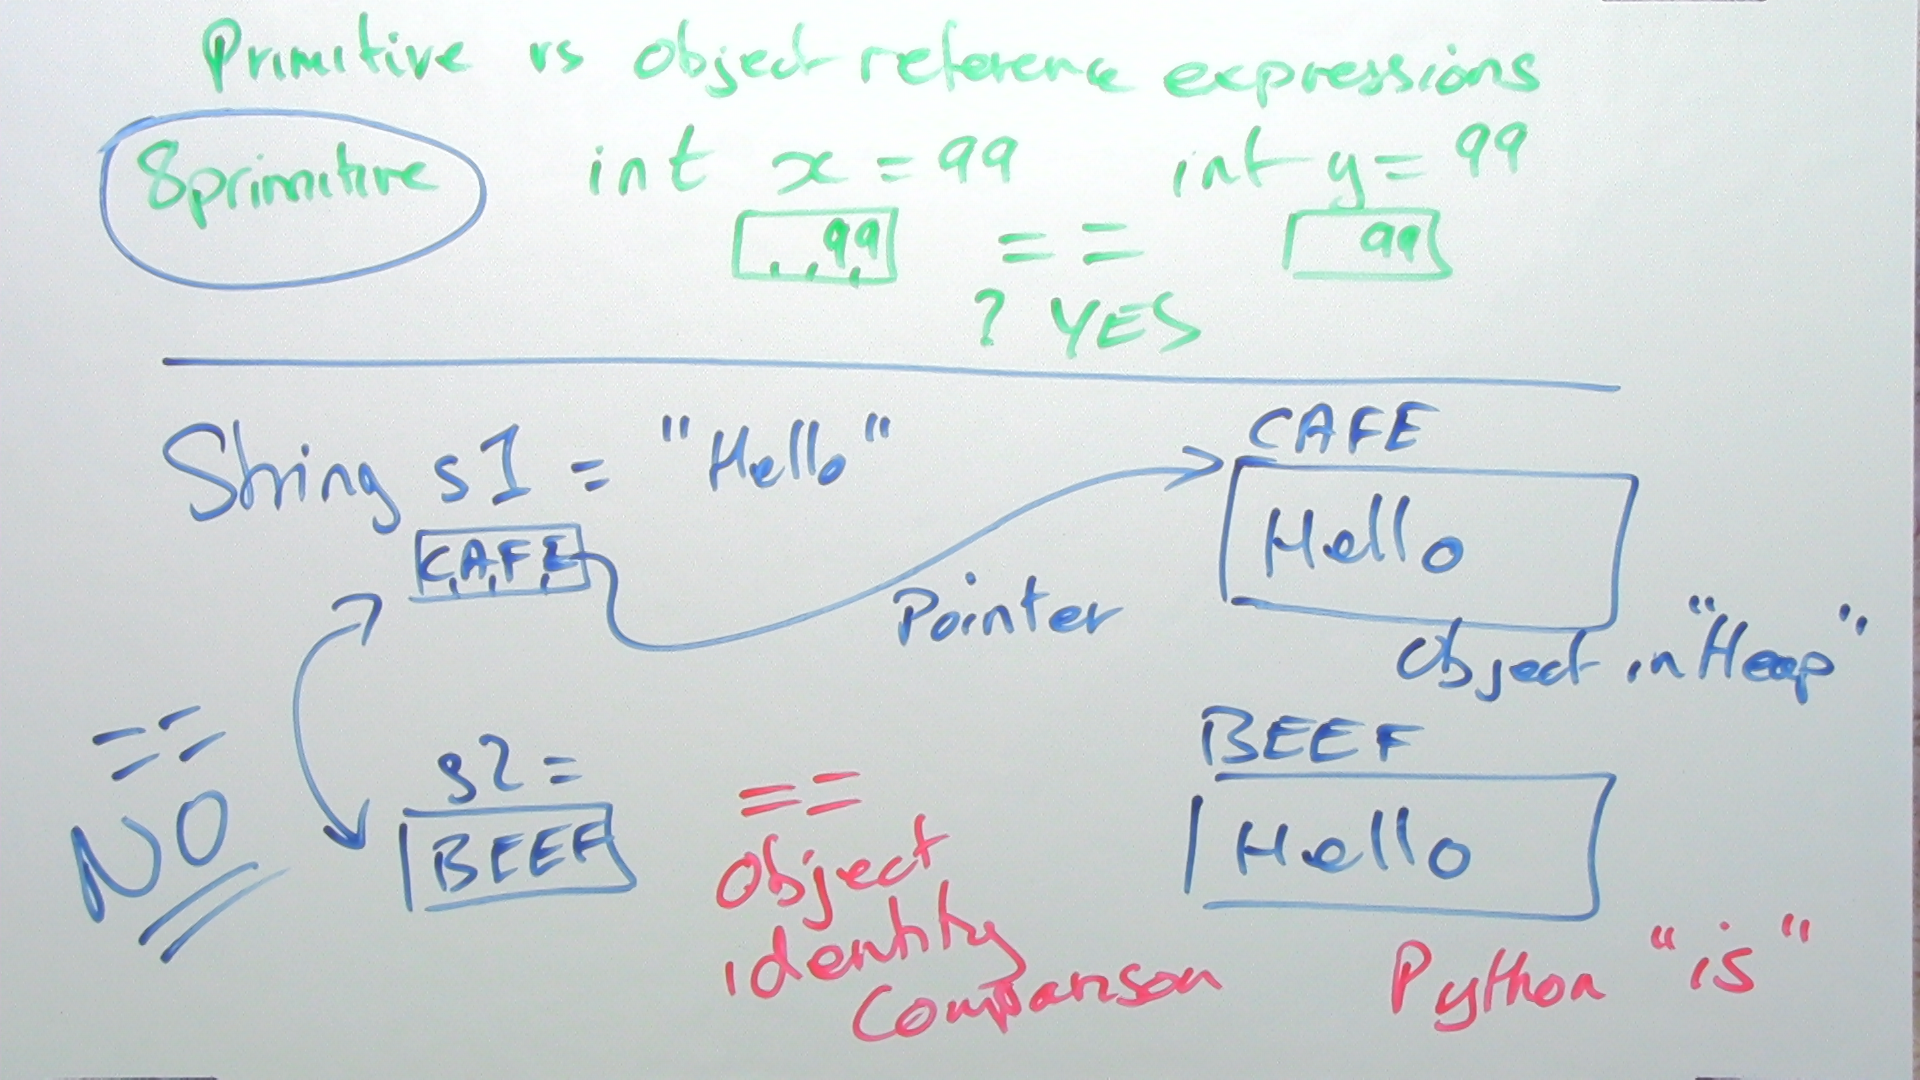 Primitive vs object reference expressions
8 primitive
int x = 99 int y = 99
99 == 99
? YES
String s1 = "Hello"
CAFE
CAFE
Hello
Pointer
Object in "Heap"
==
NO
s2 =
BEEF
BEEF
Hello
==
Object
identity
comparison
Python "is"